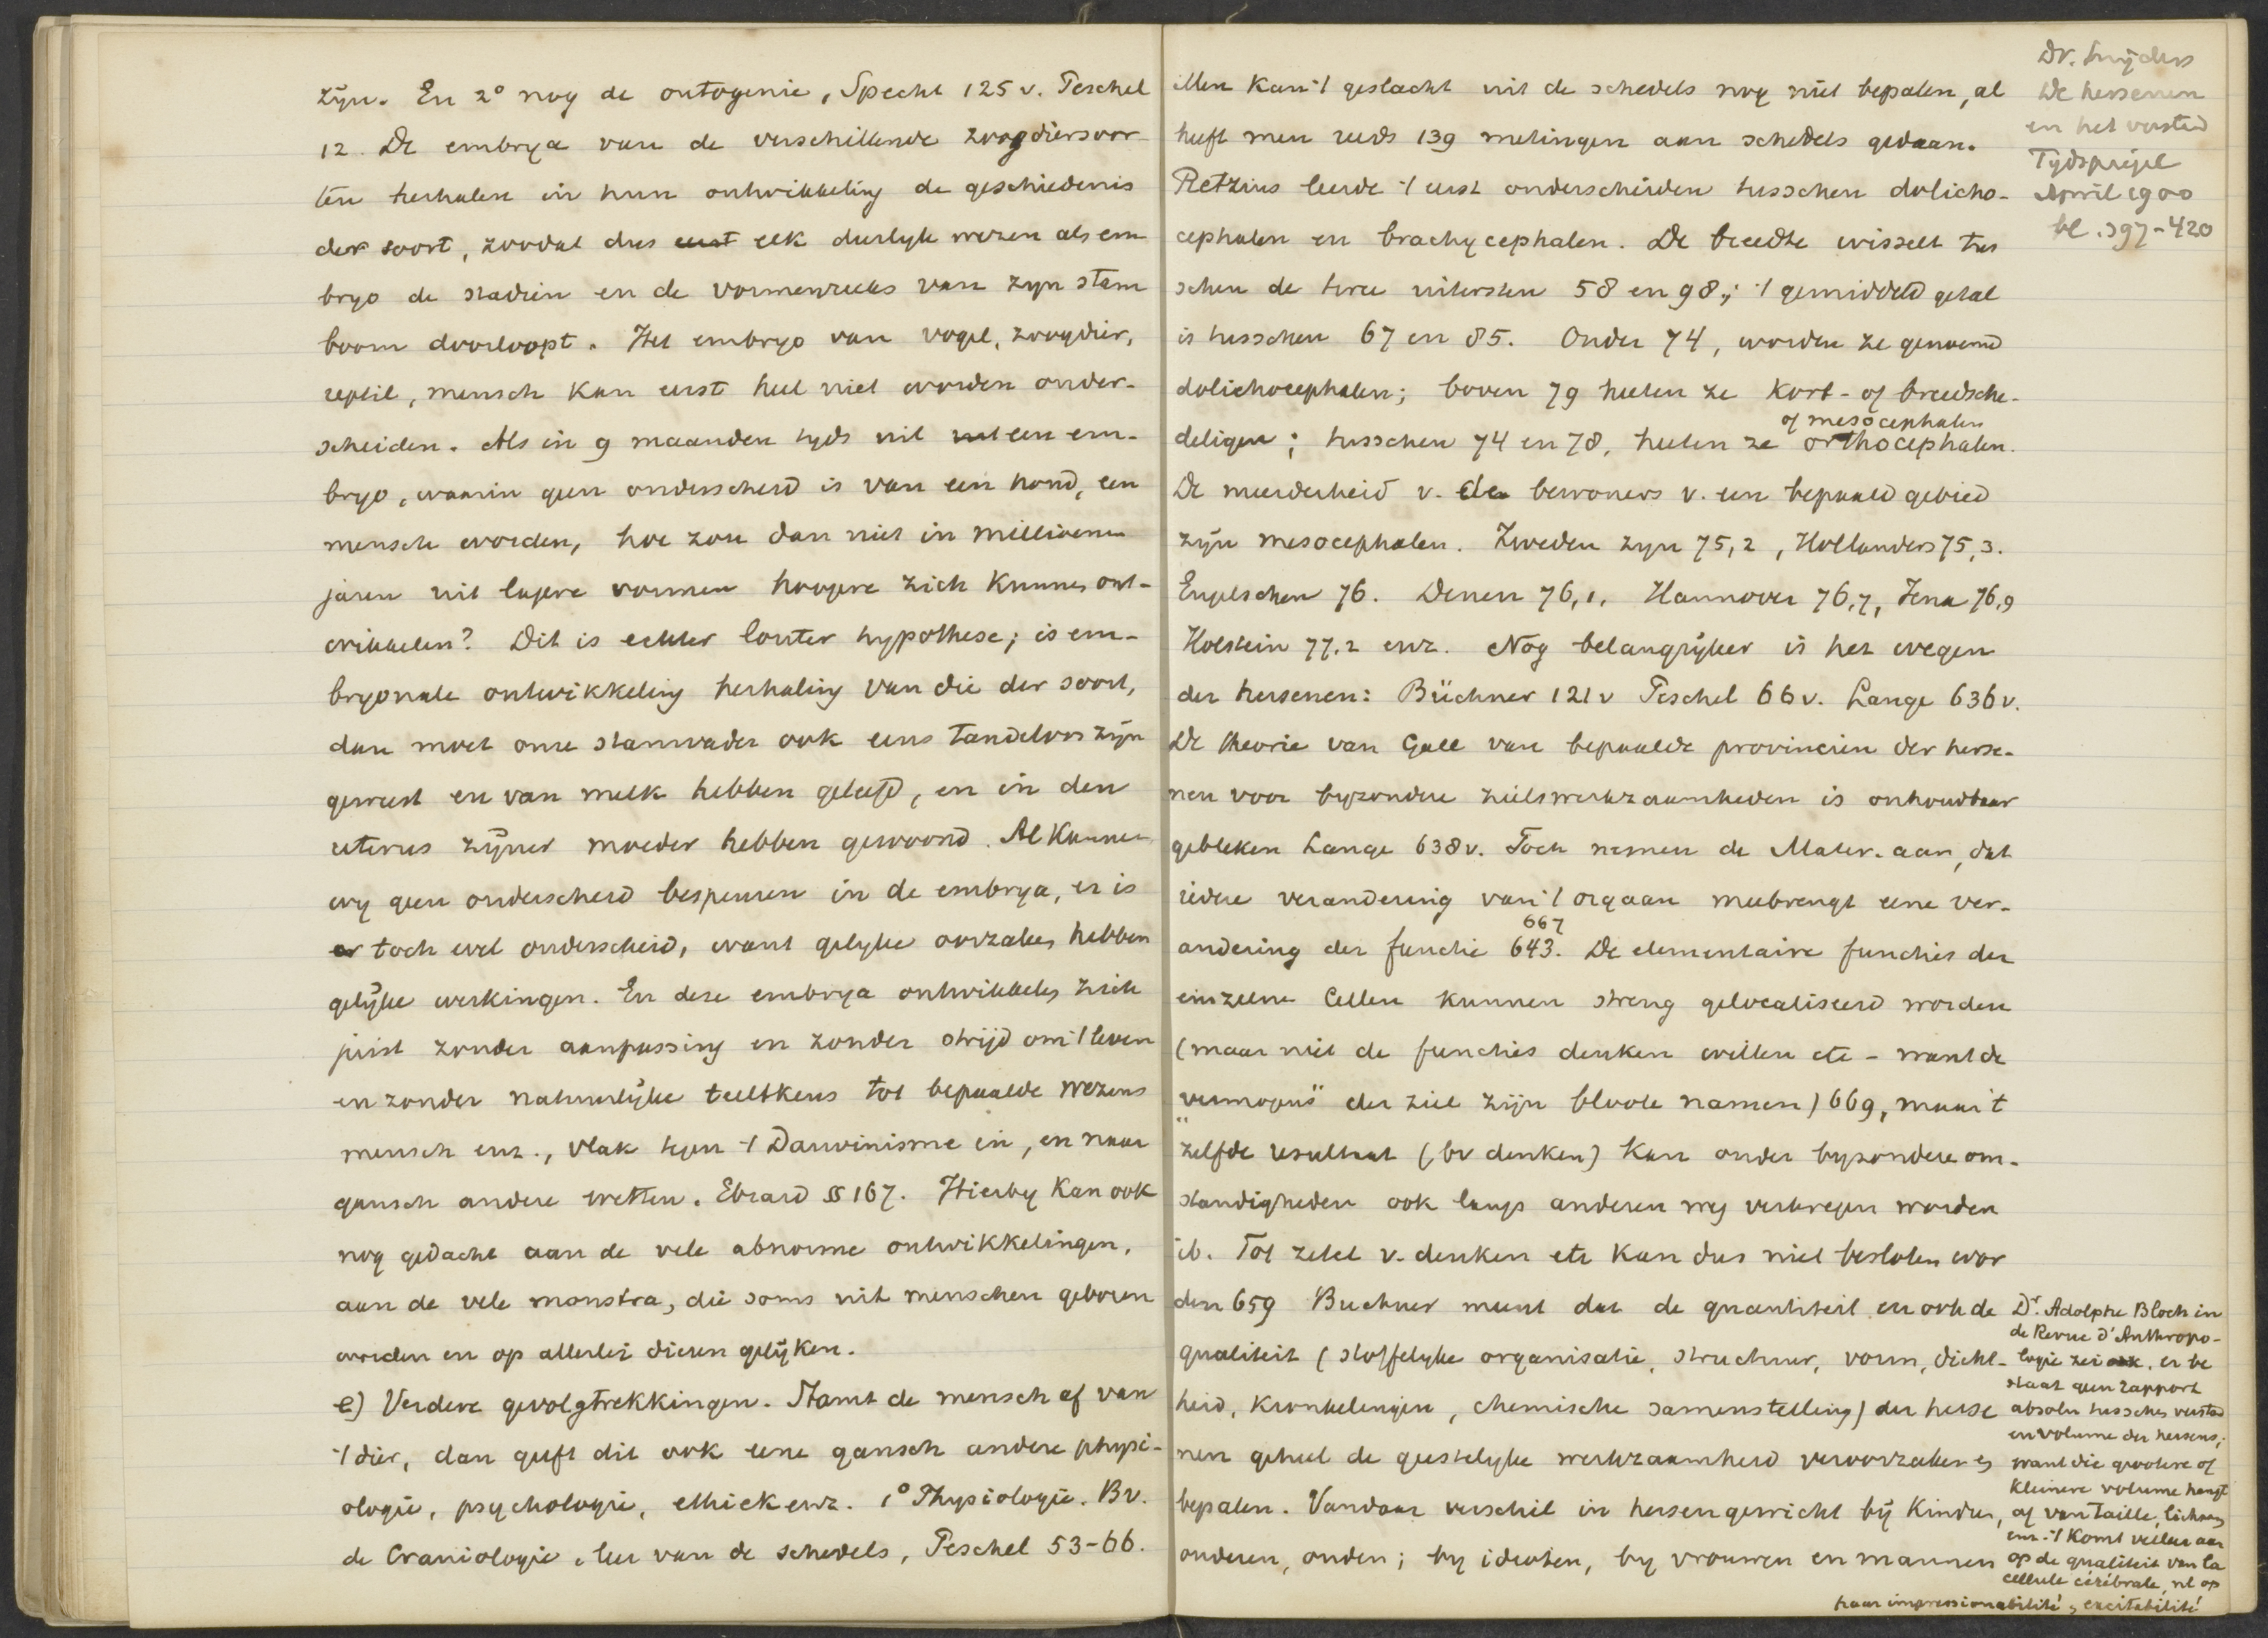 zijn. En 2° nog de ontogenie, Specht 125 v. Peschel
12. De embrya van de verschillende zoogdiersoor-
ten herhalen in hun ontwikkeling de geschiedenis
der soort, zoodat dus elk dierlyk wezen als em
bryo de stadien en de vormenreeks van zyn stam
boom doorloopt. Het embryo van vogel, zoogdier,
reptil, mensch kan eerst heel niet worden onder-
scheiden. Als in 9 maanden tyds uit een em-
bryo, waarin geen onderscheid is van een hond, een
mensch worden, hoe zou dan niet in millioenen
jaren uit lagere vormen hoogere zich kunnen ont-
wikkelen? Dit is echter louter hypothese; is em-
bryonale ontwikkeling herhaling van die der soort,
dan moet onze stamvader ook eens tandeloos zijn
geweest en van melk hebben geleefd, en in den
uterus zijner moeder hebben gewoond. Al kunnen
wy geen onderscheid bespeuren in de embrya, er is
er toch wel onderscheid, want gelyke oorzaken hebben
gelijke werkingen. En deze embrya ontwikkelen zich
juist zonder aanpassing en zonder strijd om 't leven
en zonder natuurlijke teeltkeus tot bepaalde wezens
mensch enz., vlak tegen 't Darwinisme in, en naar
gansch andere wetten. Ebrard §§ 167. Hierby kan ook
nog gedacht aan de vele abnorme ontwikkelingen,
aan de vele monstra, die soms uit menschen geboren
worden en op allerlei dieren gelijken.
e) Verdere gevolgtrekkingen. Stamt de mensch af van
't dier, dan geeft dit ook eene gansch andere physi-
ologie, psychologie, ethiek enz. 1° Physiologie. Bv.
de Craniologie, leer van de schedels, Peschel 53-66.
Men kan 't geslacht uit de schedels nog niet bepalen, al
heeft men reeds 139 metingen aan schedels gedaan.
Retzius leerde 't eerst onderscheiden tusschen dolicho-
cephalen en brachycephalen. De breedte wisselt tus
schen de twee uitersten 58 en 98; 't gemiddeld getal
is tusschen 67 en 85. Onder 74, worden ze genoemd
dolichocephalen; boven 79 heeten ze kort- of breedsche-
of mesocephalen
deligen; tusschen 74 en 78, heeten ze orthocephalen.
De meerderheid v. de bewoners v. een bepaald gebied
zijn mesocephalen. Zweden zyn 75,2, Hollanders 75,3.
Engelschen 76. Denen 76,1, Hannover 76,7, Jena 76,9
Holstein 77,2 enz. Nog belangrijker is het wegen
der hersenen: Büchner 121 v Peschel 66 v. Lange 636 v.
De theorie van Gall van bepaalde provincien der herse-
nen voor byzondere zielswerkzaamheden is onhoudbaar
gebleken Lange 638 v. Toch nemen de Mater. aan, dat
iedere verandering van 't orgaan meebrengt eene ver-
667
andering der functie 643. De elementaire functies der
einzelne Cellen kunnen streng gelocaliseerd worden
(maar niet de functies denken willen etc - want de
„vermogens" der ziel zijn bloote namen) 669, maar 't
zelfde resultaat (bv denken) kan onder byzondere om-
standigheden ook langs anderen weg verkregen worden
ib. Tot zetel v. denken etc kan dus niet besloten wor
den 659 Buchner meent dat de quantiteit en ook de
qualiteit (stoffelyke organisatie, structuur, vorm, dicht-
heid, kronkelingen, chemische samenstelling) der herse
nen geheel de geestelyke werkzaamheid veroorzaken en
bepalen. Vandaar verschil in hersengewicht bij kinder,
ouderen, ouden; by idioten, by vrouwen en mannen
Dr. Snijders
De hersenen
en het verstand
Tydspiegel
April 1900
bl. 397-420
Dr. Adolphe Bloch in
de Revue d'Anthropo-
logie zei, er be
staat geen rapport
absolu tusschen verstand
en volume der hersens;
want die grootere of
kleinere volume hangt
af van taille, lichaam
enz. 't Komt veeleer aan
op de qualiteit van la
cellule cérébrale, nl op
haar impressionabilité, excitabilité